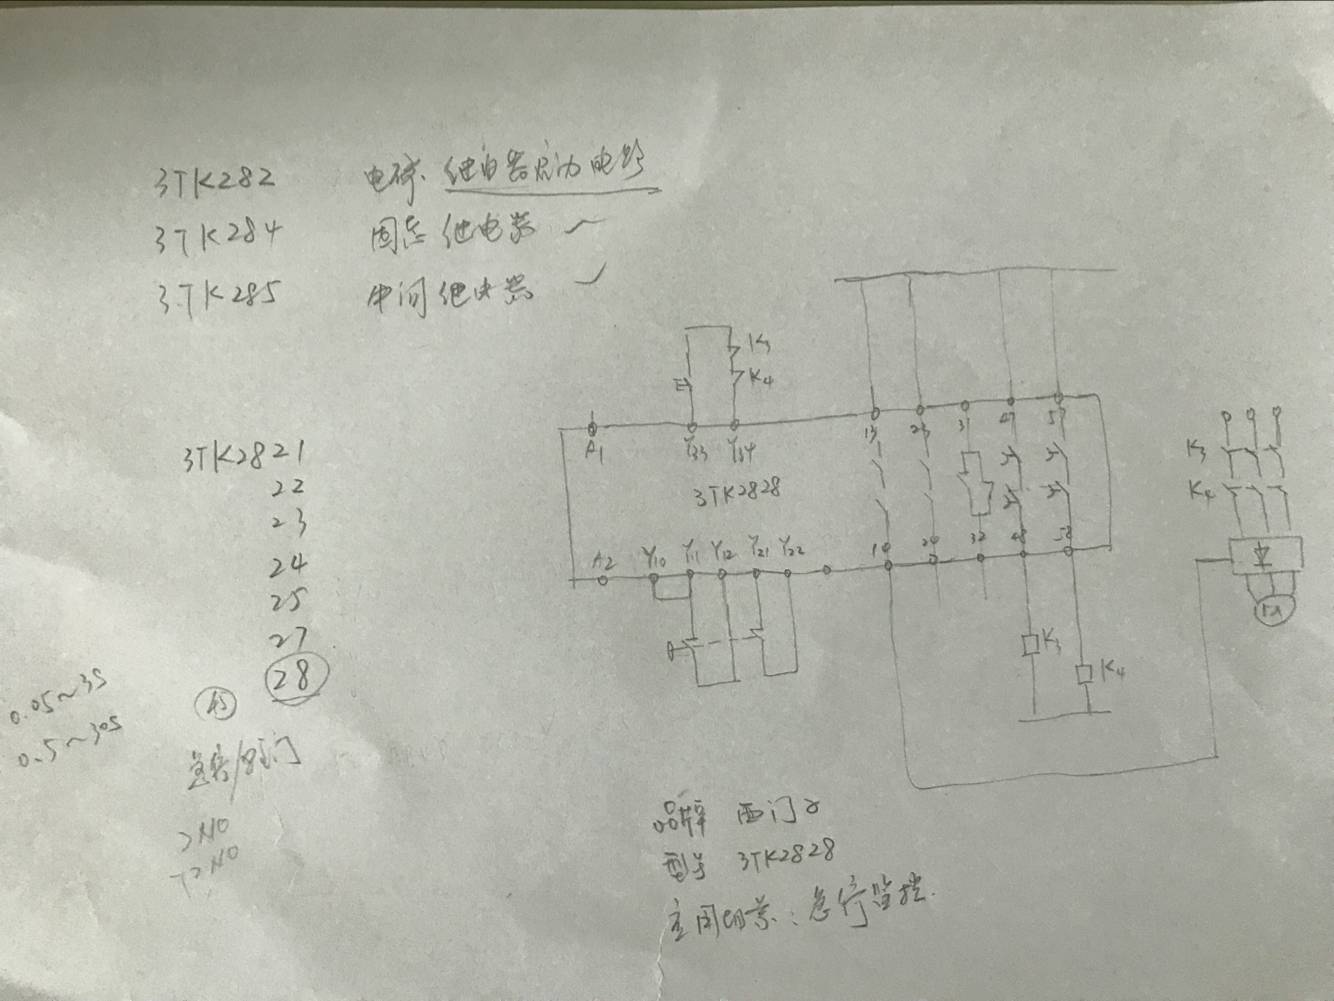 3TK282 电磁.继电器启动电路
3TK284 固态继电器
3TK285 中间继电器
3TK2821
22
23
24
25
27
28
0.05~3S
0.5~30S
急停/
2NO
+2NO
K3
K4
A1 Y33 Y34 13 23 31 47 57
3TK2828
A2 Y10 Y11 Y12 Y21 Y22 32 48 58
K3
K4
K3
K4
品牌 西门子
型号 3TK2828
急停监控.